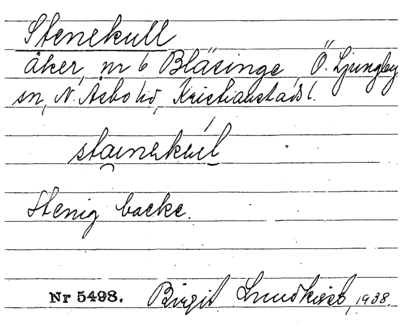 Stenekull
åker, nr 6 Bläsinge Ö. Ljungby
sn, N. Åsbo hd, Kristianstads l.
stainekúl
Stenig backe.
Nr 5493. Birgit Lundkvist, 1938.